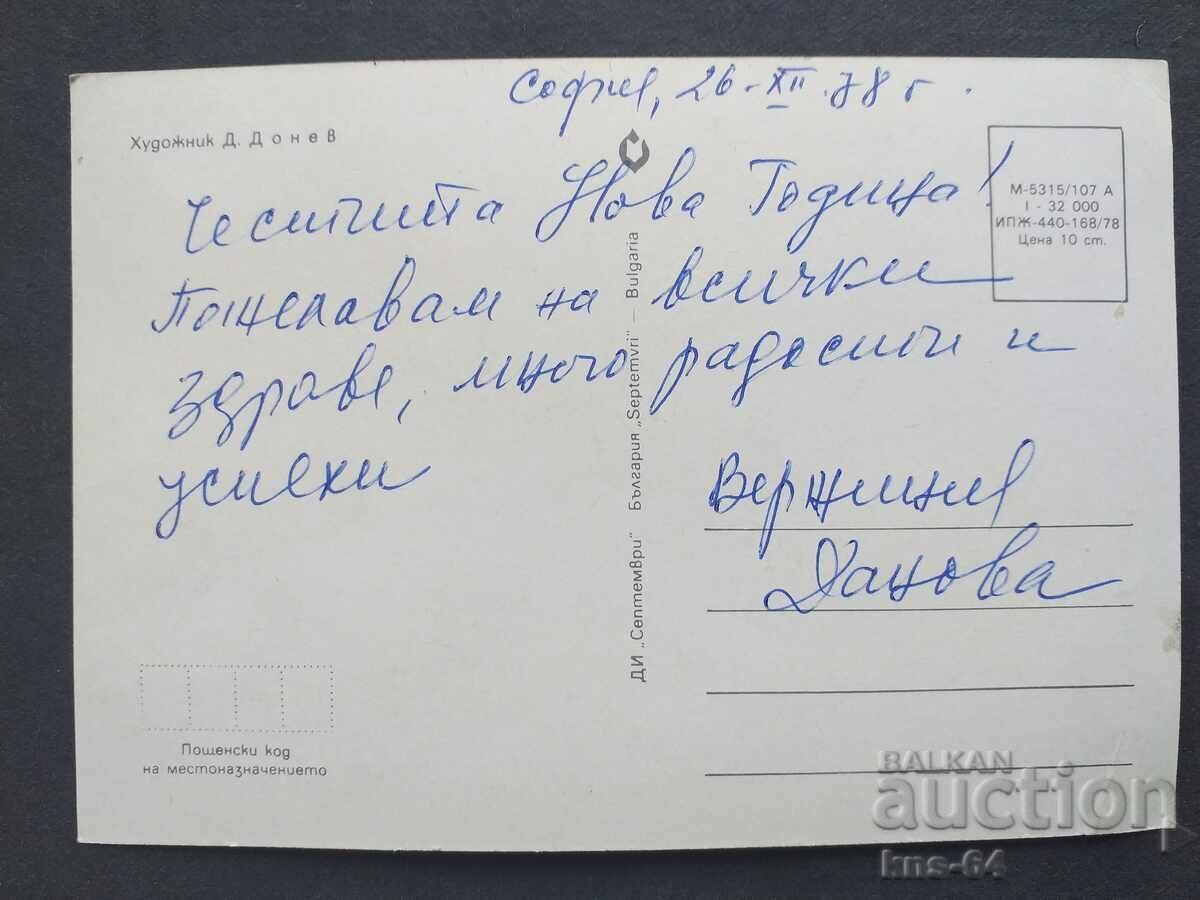 София, 26-XII.78 г.
Художник Д. Донев
М-5315/107 А
I - 32 000
ИПЖ-440-168/78
Цена 10 ст.
Честита Нова Година!
Пожелавам на всички
здраве, много радости и
успехи
Вержиния
Дацова
ДИ „Септември" България „Septemvri" — Bulgaria
Пощенски код
на местоназначението
BALKAN
auction
kns-64